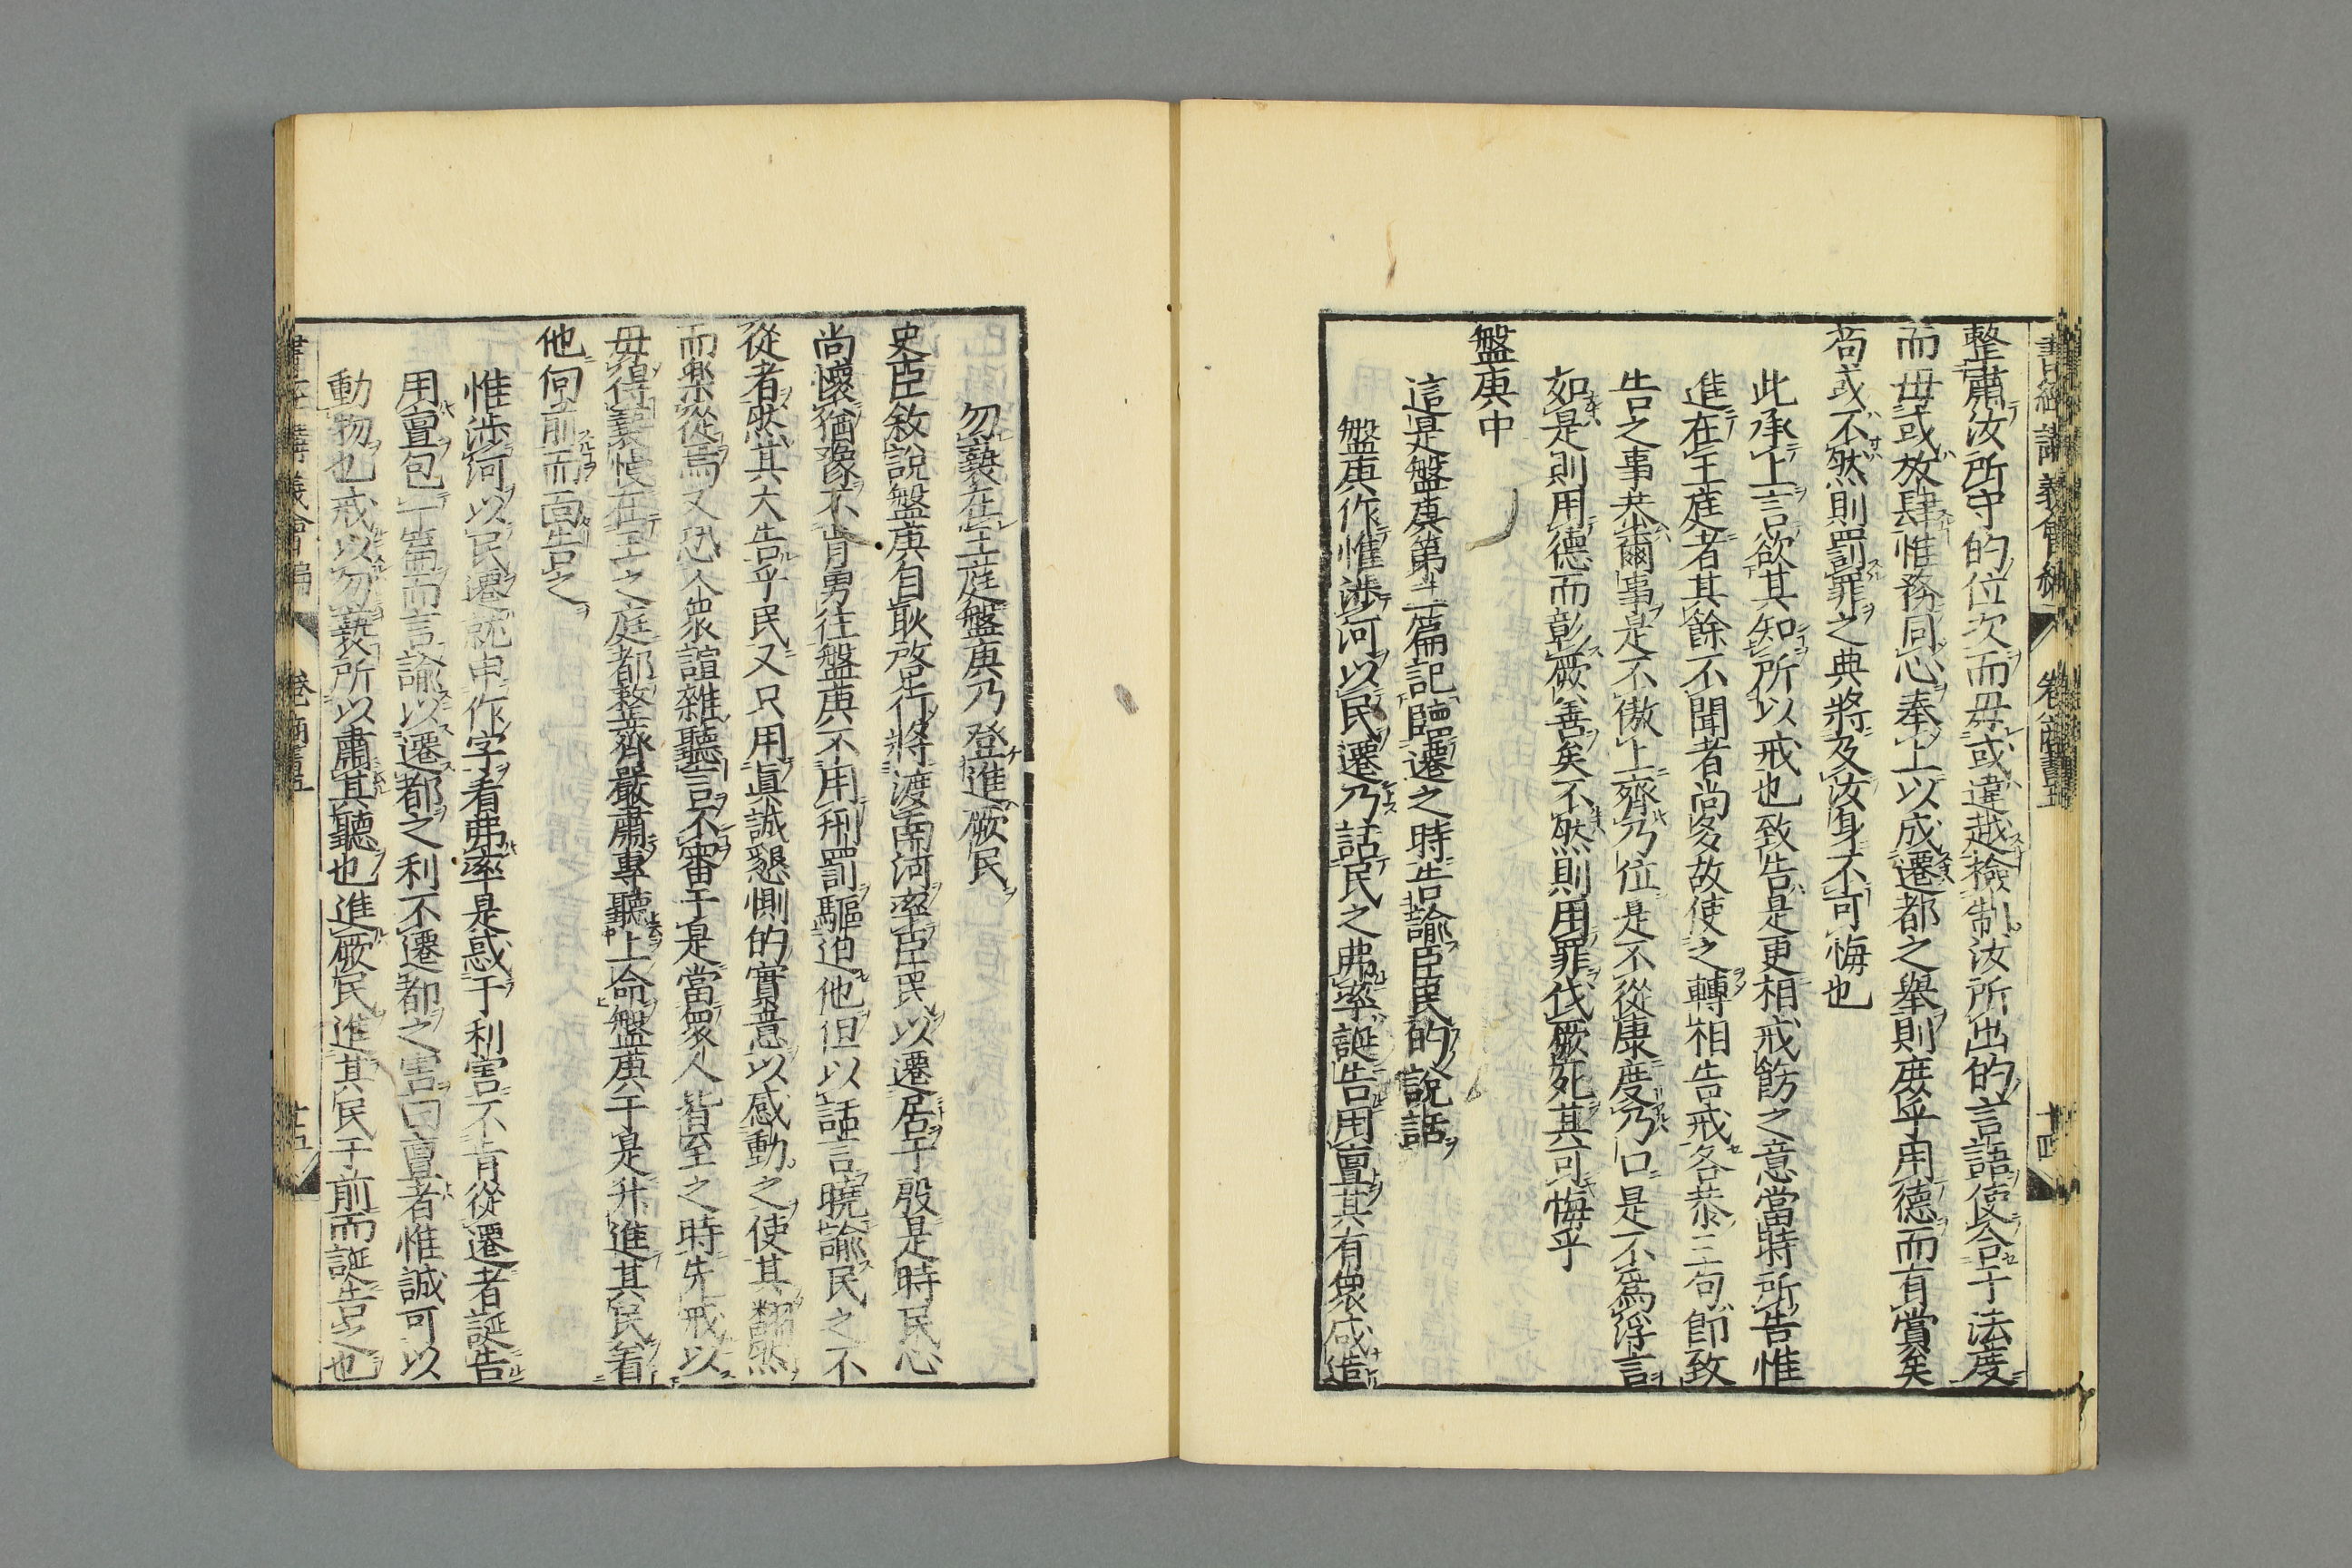 書經講義會編 卷商書 十四
整肅汝所守的位次而毋或違越檢制汝所出的言語使合于法度
而毋或放肆惟務同心奉上以成遷都之舉則庶乎用德而有賞矣
苟或不然則罰罪之典將及汝身不可悔也
此承上言欲其知所以戒也致告是更相戒飭之意當時所告惟
進在王庭者其餘不聞者尚多故使之轉相告戒各恭三句即致
告之事恭爾事是不傲上齊乃位是不從康度乃口是不爲浮言
如是則用德而彰厥善矣不然則用罪伐厥死其可悔乎
盤庚中
這是盤庚第二篇記臨遷之時告諭臣民的說話
盤庚作惟涉河以民遷乃話民之弗率誕告用亶其有衆咸造
勿褻在王庭盤庚乃登進厥民
史臣敘說盤庚自耿啓行將渡南河率臣民以遷居于殷是時民心
尚懷猶豫不肯勇往盤庚不用刑罰驅迫他但以話言曉諭民之不
從者然其大告乎民又只用眞誠懇惻的實意以感動之使其翻然
而樂從焉又恐人衆諠雜聽言不審于是當衆人皆至之時先戒以
毋得褻慢在王之庭都整齊嚴肅專聽上命盤庚于是升進其民看
他向前而面告之
惟涉河以民遷就申作字看弗率是惑于利害不肯從遷者誕告
用亶包下篇而言諭以遷都之利不遷都之害曰亶者惟誠可以
動物也戒以勿褻所以肅其聽也進厥民進其民于前而誕告之也
書經講義會編 卷商書 十五